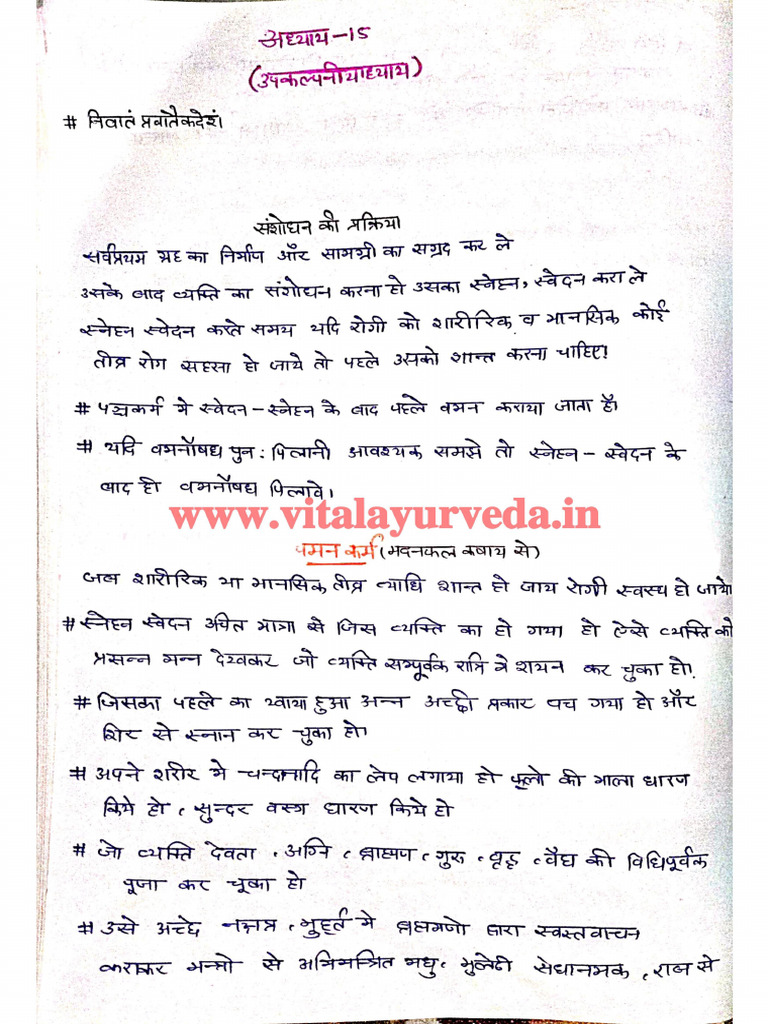 अध्याय -15
(उपकल्पनीयाध्याय)
# निवातं प्रवातैकदेशं।
संशोधन की प्रक्रिया
सर्वप्रथम ग्रह का निर्माण और सामग्री का सग्रद कर ले
उसके बाद व्यक्ति का संशोधन करना हो उसका स्नेहन, स्वेदन करा ले
स्नेहन स्वेदन करते समय यदि रोगी को शारीरिक व मानसिक कोई
तीव्र रोग सहसा हो जाये तो पहले उसको शान्त करना चाहिए!
# पञ्चकर्म मे स्वेदन - स्नेहन के बाद पहले वमन कराया जाता है।
# यदि वमनौषध पुन: पिलानी आवश्यक समझे तो स्नेहन - स्वेदन के
बाद ही वमनौषध पिलावे।
www.vitalayurveda.in
वमन कर्म (मदनफल कषाय से)
जब शारीरिक या मानसिक तीव्र व्याधि शान्त हो जाय रोगी स्वस्थ हो जाये।
# स्नेहन स्वेदन उचित मात्रा से जिस व्यक्ति का हो गया हो ऐसे व्यक्ति को
प्रसन्न मन्न देखकर जो व्यक्ति सम्पूर्वक रात्रि मे शयन कर चुका हो!
# जिसका पहले का खाया हुआ अन्न अच्छी प्रकार पच गया हो और
शिर से स्नान कर चुका हो।
# अपने शरीर मे चन्दनादि का लेप लगाया हो फूलो की माला धारण
किये हो, सुन्दर वस्त्र धारण किये हो
# जो व्यक्ति देवता, अग्नि, ब्राह्मण, गुरु, वृद्ध, वैद्य की विधिपूर्वक
पूजा कर चूका हो
# उसे अच्छे नक्षत्र, मुहूर्त मे ब्रह्मगणो द्वारा स्वस्तवाचन
कराकर मन्त्रो से अभिमन्त्रित मधु, मुलेठी सेंधानमक, राब से